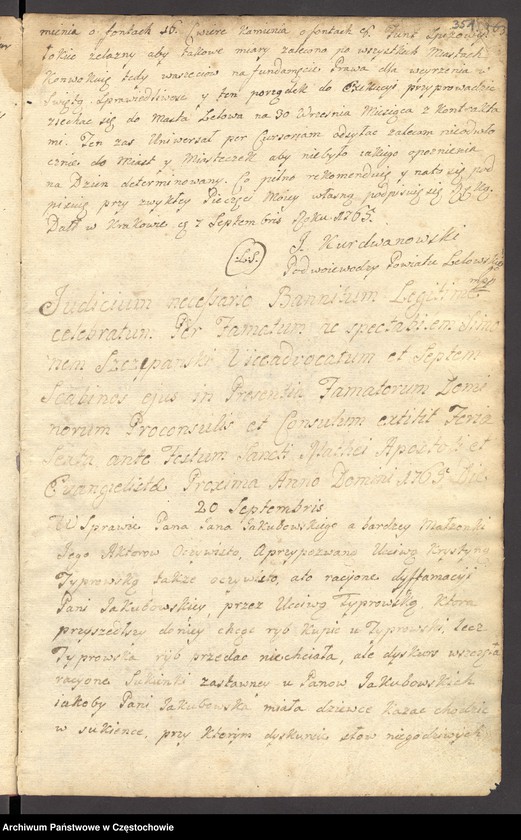 354 163
mienia o fontach 16. Cwierc kamienia o fontach 8. Funt Łokcie
także zelazny aby takowe miary zalecono po wszystkich Miastach
Konwokuię tedy waszeciow na fundamęcie Prawa dla weyrzenia w
Swiętą Sprawiedliwosc y ten porządek do Exekucyi przyprowadzic
ziechac się do Miasta Lelowa na 30 Wrzesnia Miesiąca z Kontrakta
mi. Ten zas Uniwersał per Cursoriam odsyłac zalecam nieodwło
cznie do Miast y Miasteczek aby niebyło całego opoznienia
na Dzien determinowany. Co pilno rekomenduię y na to się pod
pisuię przy zwykłey Pieczęci Moiey własną podpisuię się Ręką.
Datt w Krakowie d. 7 Septembris Roku 1765.
J. Kurdwanowski
(L.S.)
Podwoiewodzy Powiatu Lelowskie
go
Judicium necessario Bannitum Legitime
celebratum. Per Famatum ac spectabilem Simo
nem Szczepanski Viceadvocatum et Septem
Scabinos ejus in Presentia Famatorum Domi
norum Proconsulis et Consulum extitit Feria
Sexta ante Festum Sancti Mathei Apostoli et
Evangelista Proxima Anno Domini 1765 Die
20 Septembris
W Sprawie Pana Jana Jakubowskiego a bardziey Małzonki
Jego Aktorow Oczywisto, A przypozwaną Uczciwą Krystyną
Typrowską także oczywisto, ato racyone dyffamacyi
Pani Jakubowskiey, przez Uczciwą Typrowską, ktora
przyszedłszy do niey chcąc ryb kupic u Typrowski, lecz
Typrowska ryb przedac niechciała, ale dyskurs wszczęła
racyone Sukienki zastawney u Panow Jakubowskich
iakoby Pani Jakubowska miała dziewce kazac chodzic
w sukience, przy ktorym dyskursie słow niegodziwych
Archiwum Państwowe w Częstochowie